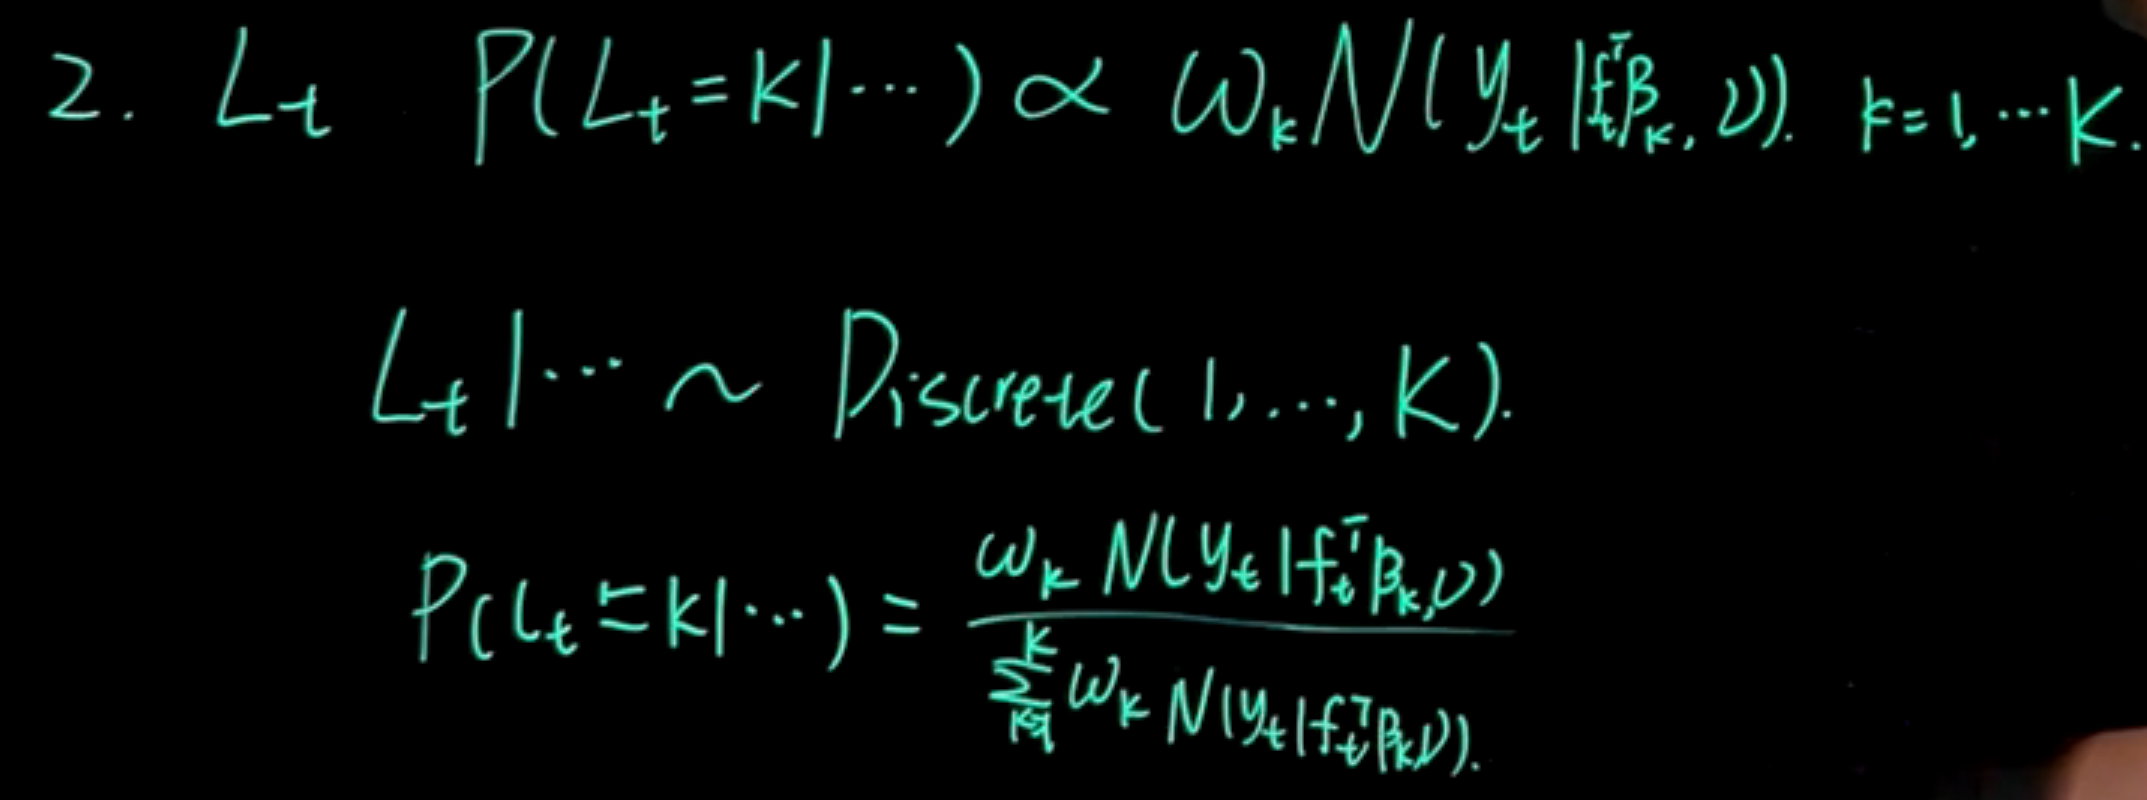 2. L_t P(L_t = k | ⋯) ∝ ω_k N(y_t | f_t^T β_k, ν). k = 1, ⋯ K.
L_t | ⋯ ~ Discrete(1, …, K).
P(L_t = k | ⋯) = \frac{ω_k N(y_t | f_t^T β_k, ν)}{\sum_{k=1}^{K} ω_k N(y_t | f_t^T β_k, ν).}